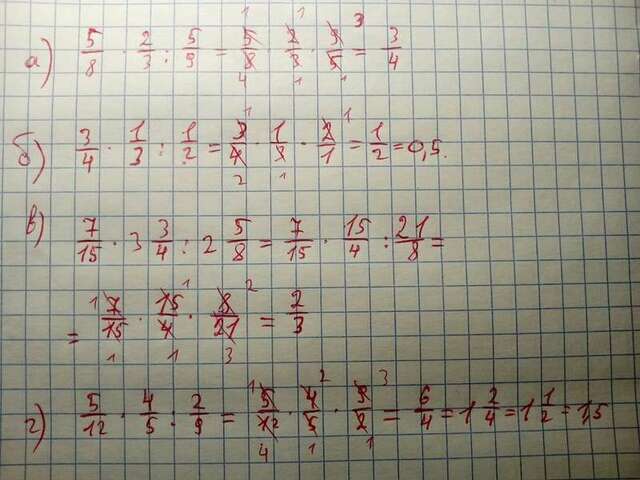 а) 5/8 · 2/3 : 5/9 = 5/8 · 2/3 · 9/5 = 3/4
б) 3/4 · 1/3 : 1/2 = 3/4 · 1/3 · 2/1 = 1/2 = 0,5.
в) 7/15 · 3 3/4 : 2 5/8 = 7/15 · 15/4 : 21/8 =
= 7/15 · 15/4 · 8/21 = 2/3
г) 5/12 · 4/5 : 2/9 = 5/12 · 4/5 · 9/2 = 6/4 = 1 2/4 = 1 1/2 = 1,5